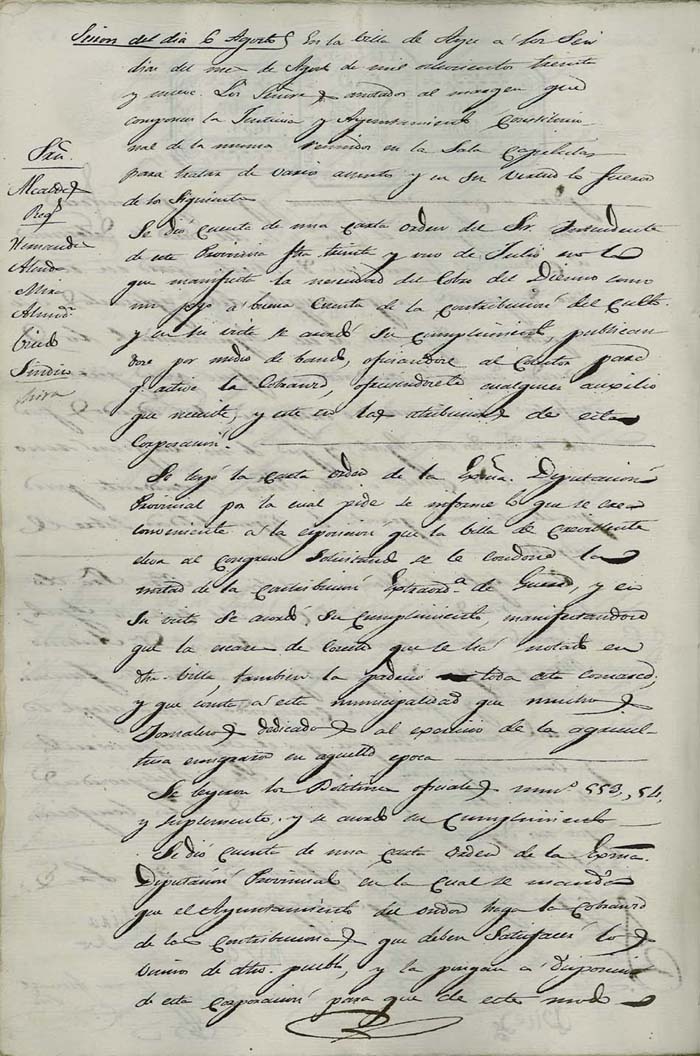 Sesion del dia 6 Agosto
En la villa de Aspe á los Seis
dias del mes de Agosto de mil ochocientos treinta
y nueve. Los Señores anotados al margen que
componen la Justicia y Ayuntamiento Constitucio
nal de la misma reunidos en la Sala Capitular
para tratar de varios asuntos y en su virtud lo fueron
de los Siguientes
Sres.
Alcaldes
Regs.
Hernandez
Alenda
Mira
Almiñ.
Cried
Sindico
Mira
Se dió cuenta de una carta orden del Sr. Intendente
de esta Provincia fha treinta y uno de Julio en la
que manifiesta la necesidad del Cobro del Diezmo como
un pago á buena Cuenta de la Contribucion del Culto
y en su vista se acordó su cumplimiento, publican
dose por medio de bando, oficiandose al Colector para
q. active la Cobranza, ofreciendosele cualquier auxilio
que necesite, y esté en las atribuciones de esta
Corporacion.
Se leyó la Carta Orden de la Exma. Diputacion
Provincial por la cual pide se informe lo que se crea
conveniente á la esposicion que la villa de Crevillente
eleva al Congreso Solicitando se le condone la
mitad de la Contribucion Extraord.ª de Guerra, y en
su vista se acordó su cumplimiento, manifestandose
que la escasez de Cosecha que se há notado en
dha. villa tambien la padeció toda esta comarca,
y que consta á esta municipalidad que muchos
Jornaleros dedicados al exercicio de la agricul
tura emigraron en aquella epoca
Se leyeron los Boletines oficiales num.º 553, 54,
y suplemento, y se acordó su cumplimiento
Se dió cuenta de una carta orden de la Exma.
Diputacion Provincial en la cual se manda
que el Ayuntamiento del ondon haga la Cobranza
de las Contribuciones que deben Satisfacer los
vecinos de dho. pueblo, y la pongan á disposicion
de esta Corporacion para que de este modo